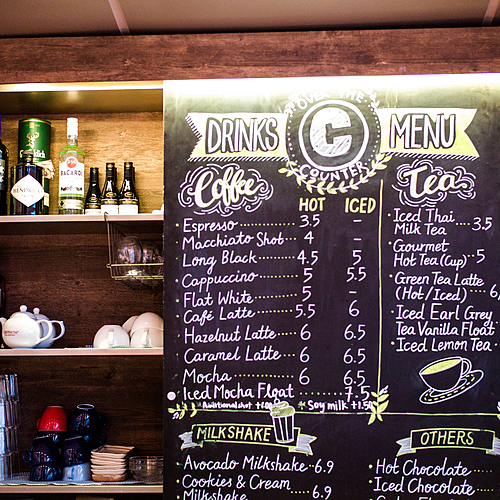 OVER THE
DRINKS C MENU
COUNTER
Coffee
HOT ICED
Espresso 3.5 –
Macchiato Shot 4 –
Long Black 4.5 5
Cappuccino 5 5.5
Flat White 5 –
Café Latte 5.5 6
Hazelnut Latte 6 6.5
Caramel Latte 6 6.5
Mocha 6 6.5
Iced Mocha Float 7.5
Additional shot
Soy milk +1.50
Tea
Iced Thai
Milk Tea 3.5
Gourmet
Hot Tea (Cup) 5
Green Tea Latte
(Hot / Iced) 6
Iced Earl Grey
Tea Vanilla Float
Iced Lemon Tea
MILKSHAKE
Avocado Milkshake 6.9
Cookies & Cream
Milkshake 6.9
OTHERS
Hot Chocolate
Iced Chocolate
BACARDI
HENDRICK'S